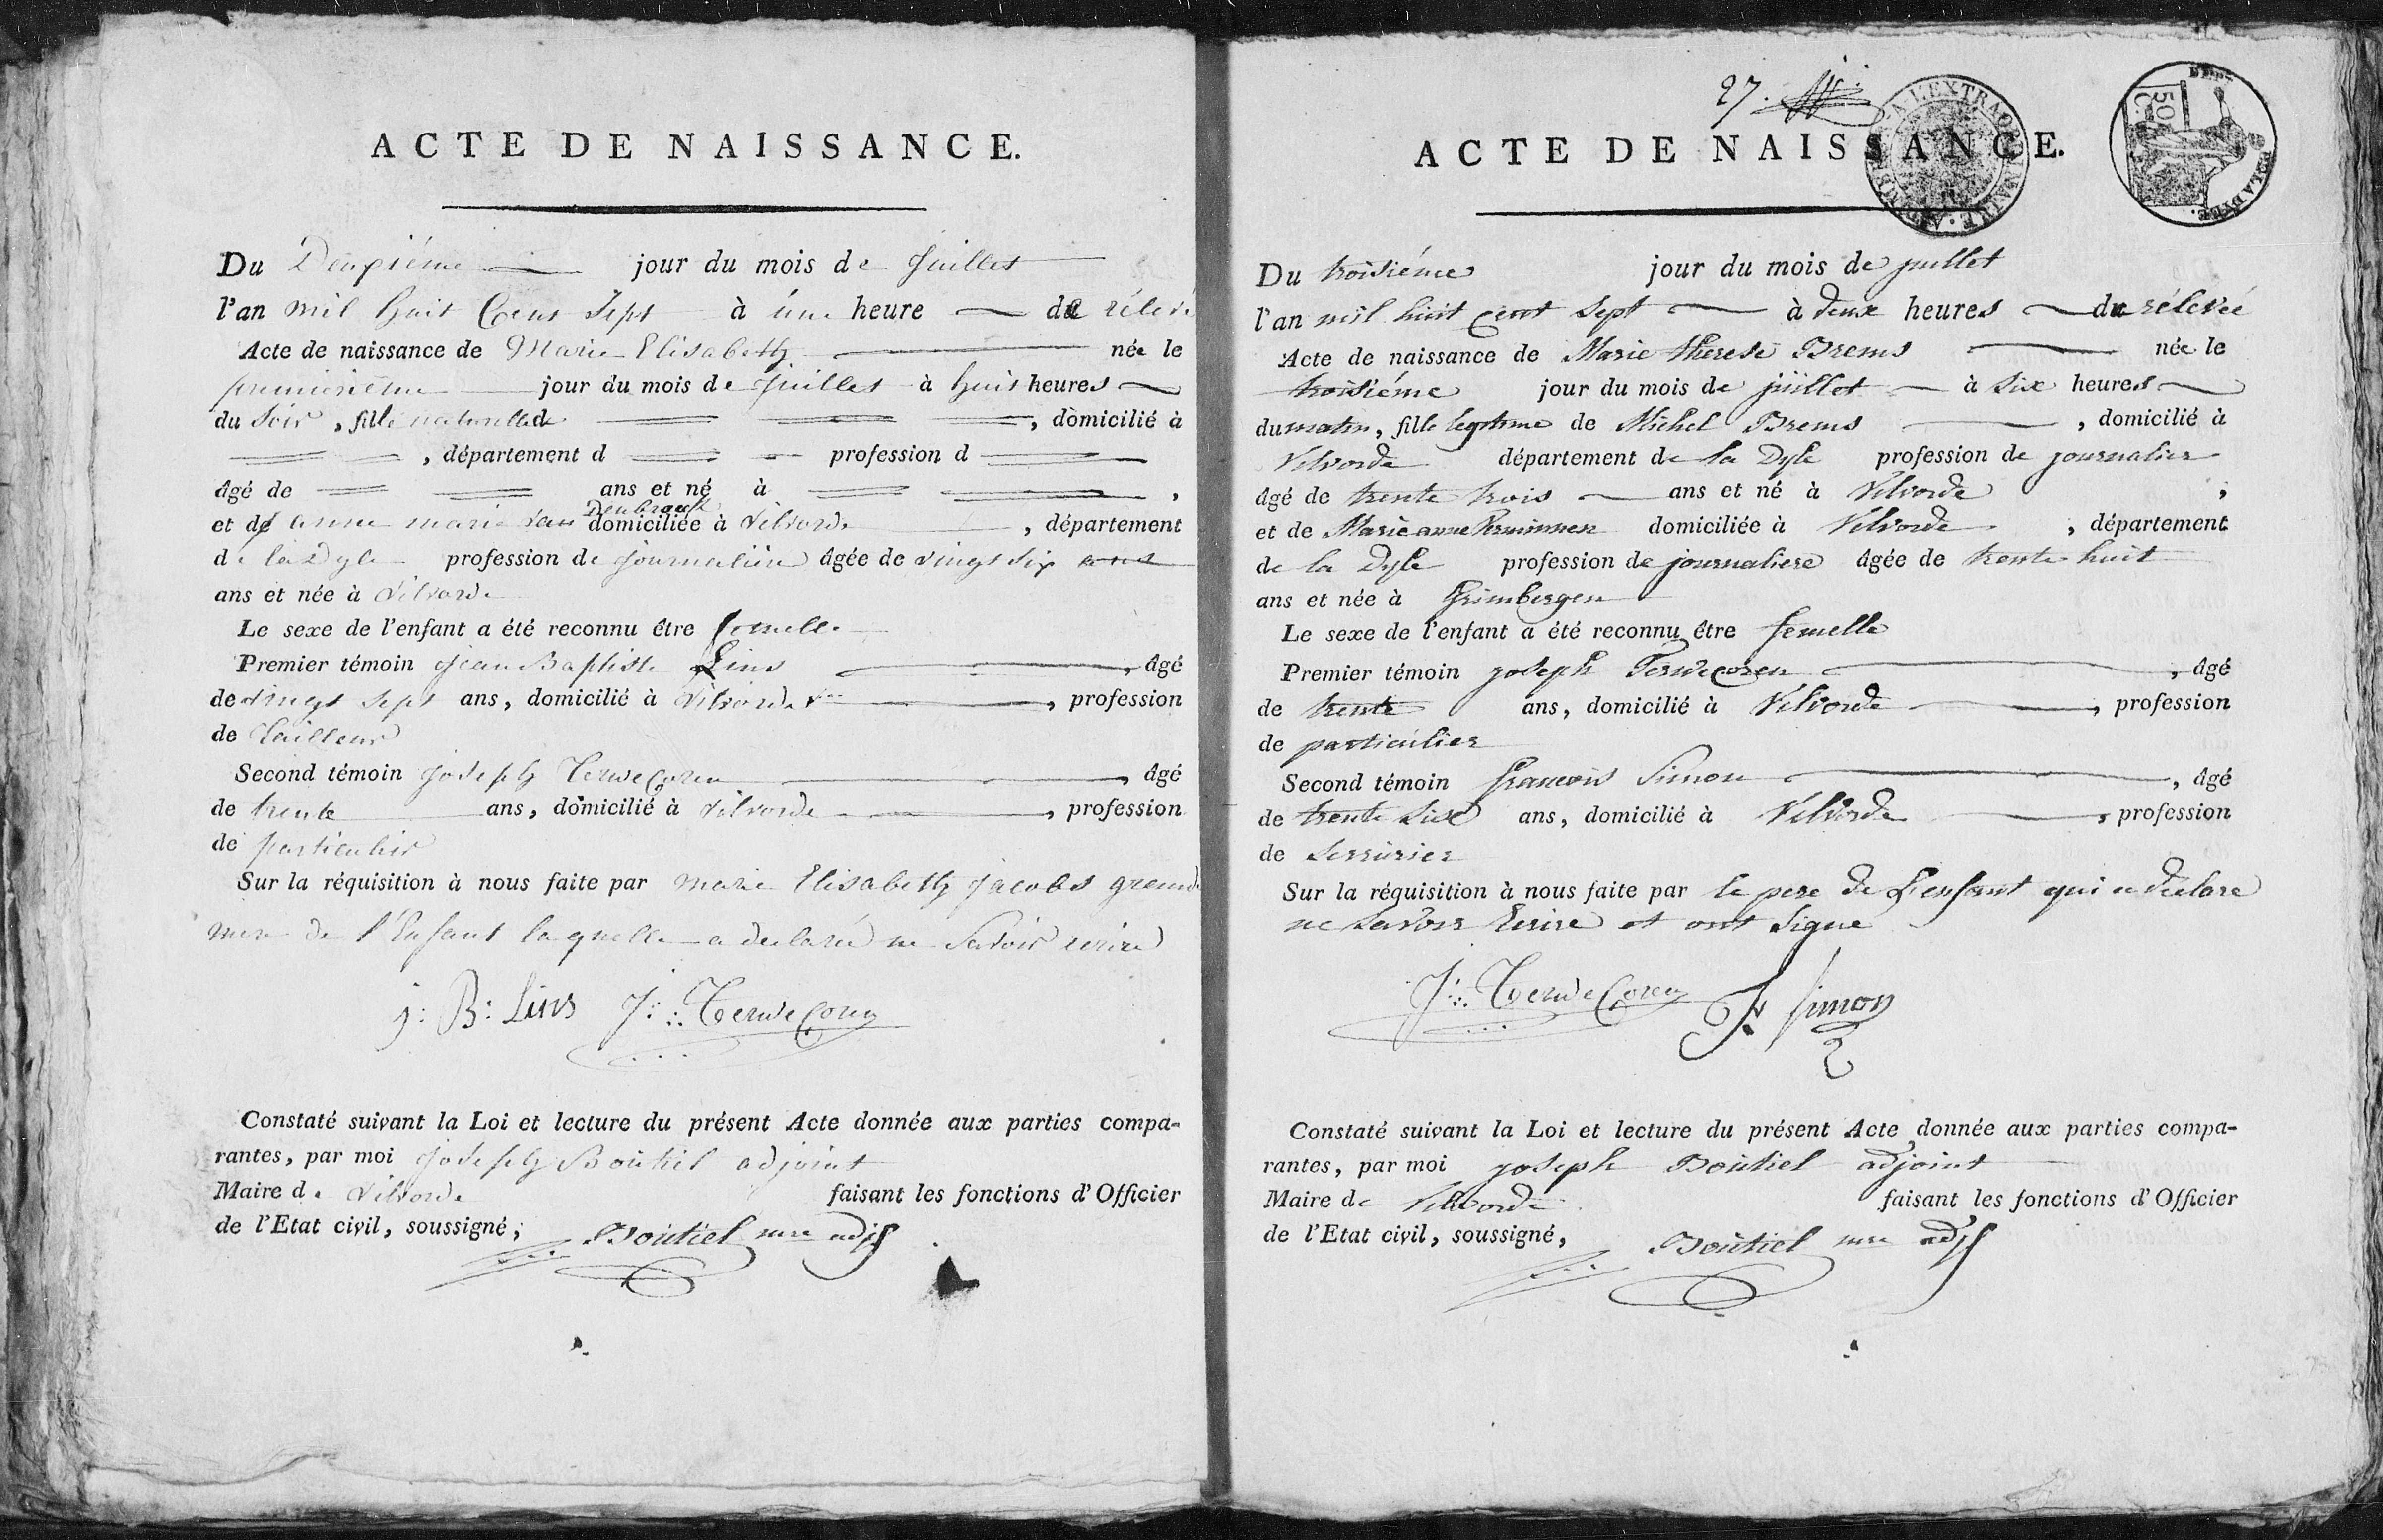 ACTE DE NAISSANCE.
Du Deuxiéme jour du mois de Juillet
l'an mil huit Cent Sept à úne heure de rélevé
Acte de naissance de Marie Elisabeth née le
jour du mois de Juillet à huit heures
du Soir, fille naturelle de , domicilié à
, département d profession d
âgé de ans et né à ,
et de anne marie van Denbrande domiciliée à Vilvorde , département
de la Dyle profession de journaliere âgée de vingt six ans
ans et née à Vilvorde
Le sexe de l'enfant a été reconnu être femelle
Premier témoin Jean Baptiste Lins , âgé
de vingt sept ans, domicilié à Vilvorde , profession
de tailleur
Second témoin Joseph TerweCoren , âgé
de trente ans, domicilié à Vilvorde , profession
de particulier
Sur la réquisition à nous faite par marie Elisabeth Jacobs grand
mere de l'Enfant laquelle a declarée ne Savoir ecrire
j: B: Lins J: TerweCoren
Constaté suivant la Loi et lecture du présent Acte donnée aux parties compa-
rantes, par moi Joseph Boútiel adjoint
Maire de Vilvorde faisant les fonctions d'Officier
de l'Etat civil, soussigné; Boútiel mre adjt
27.
A L'EXTRAORDINAIRE
50 C.
DYLE
ACTE DE NAISSANCE.
Du troisiéme jour du mois de juillet
l'an mil huit Cent Sept à deux heures de rélevée
Acte de naissance de Marie therese Brems née le
troisiéme jour du mois de juillet à Six heures
du matin, fille legitime de Michel Brems , domicilié à
Vilvorde département de la Dyle profession de journalier
âgé de trente trois ans et né à Vilvorde ,
et de Marie anne domiciliée à Vilvorde , département
de la Dyle profession de journaliere âgée de trente huit
ans et née à Grimbergen
Le sexe de l'enfant a été reconnu être femelle
Premier témoin joseph TerweCoren , âgé
de trente ans, domicilié à Vilvorde , profession
de particulier
Second témoin francois Simon , âgé
de trente Six ans, domicilié à Vilvorde , profession
de Serrurier
Sur la réquisition à nous faite par le pere de L'enfant qui a declare
ne Savoir Ecrire et ont Signe
J: TerweCoren F Simon
Constaté suivant la Loi et lecture du présent Acte donnée aux parties compa-
rantes, par moi joseph Boútiel adjoint
Maire de Vilvorde faisant les fonctions d'Officier
de l'Etat civil, soussigné, Boútiel mre adjt